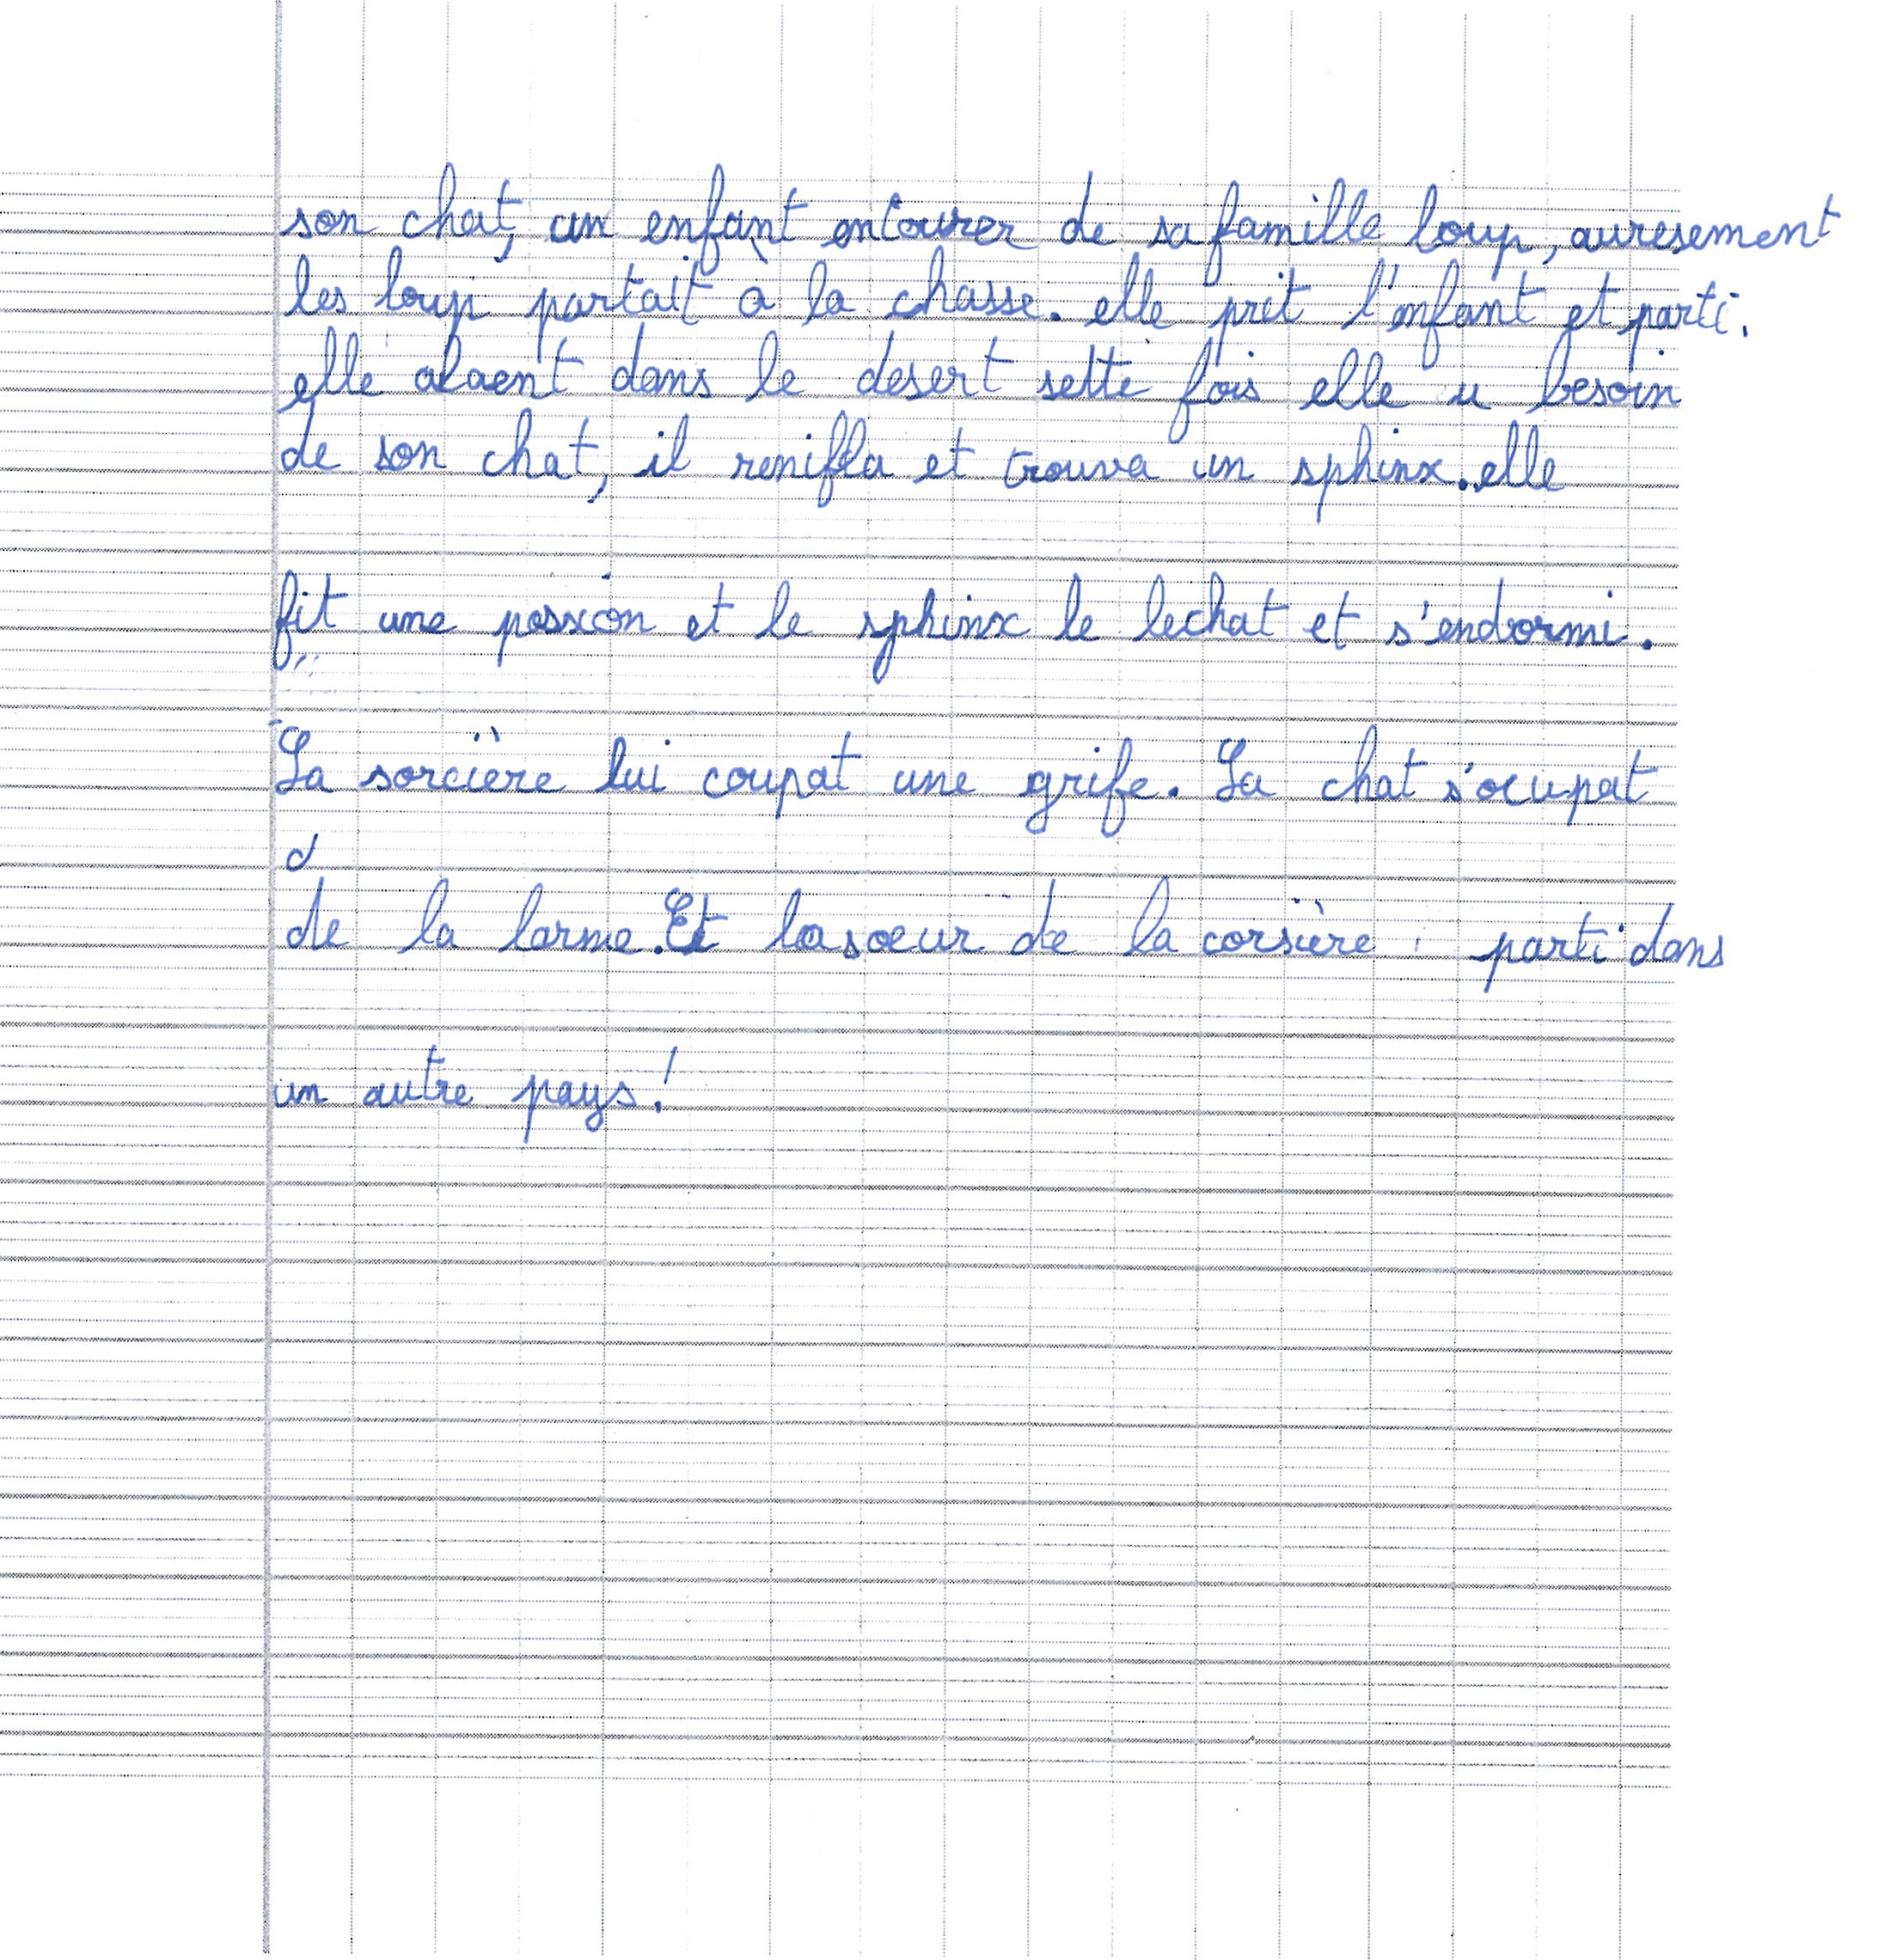 son chat, un enfant entourer de sa famille loup, auresement
les loup partait à la chasse. elle prit l'enfant et parti.
elle alaent dans le desert sette fois elle u besoin
de son chat, il renifla et trouva un sphinx. elle
fit une possion et le sphinx le lechat et s'endormi.
La sorcière lui coupat une grife. La chat s'ocupat
d
de la larme. Et la soeur de la corsière parti dans
un autre pays!